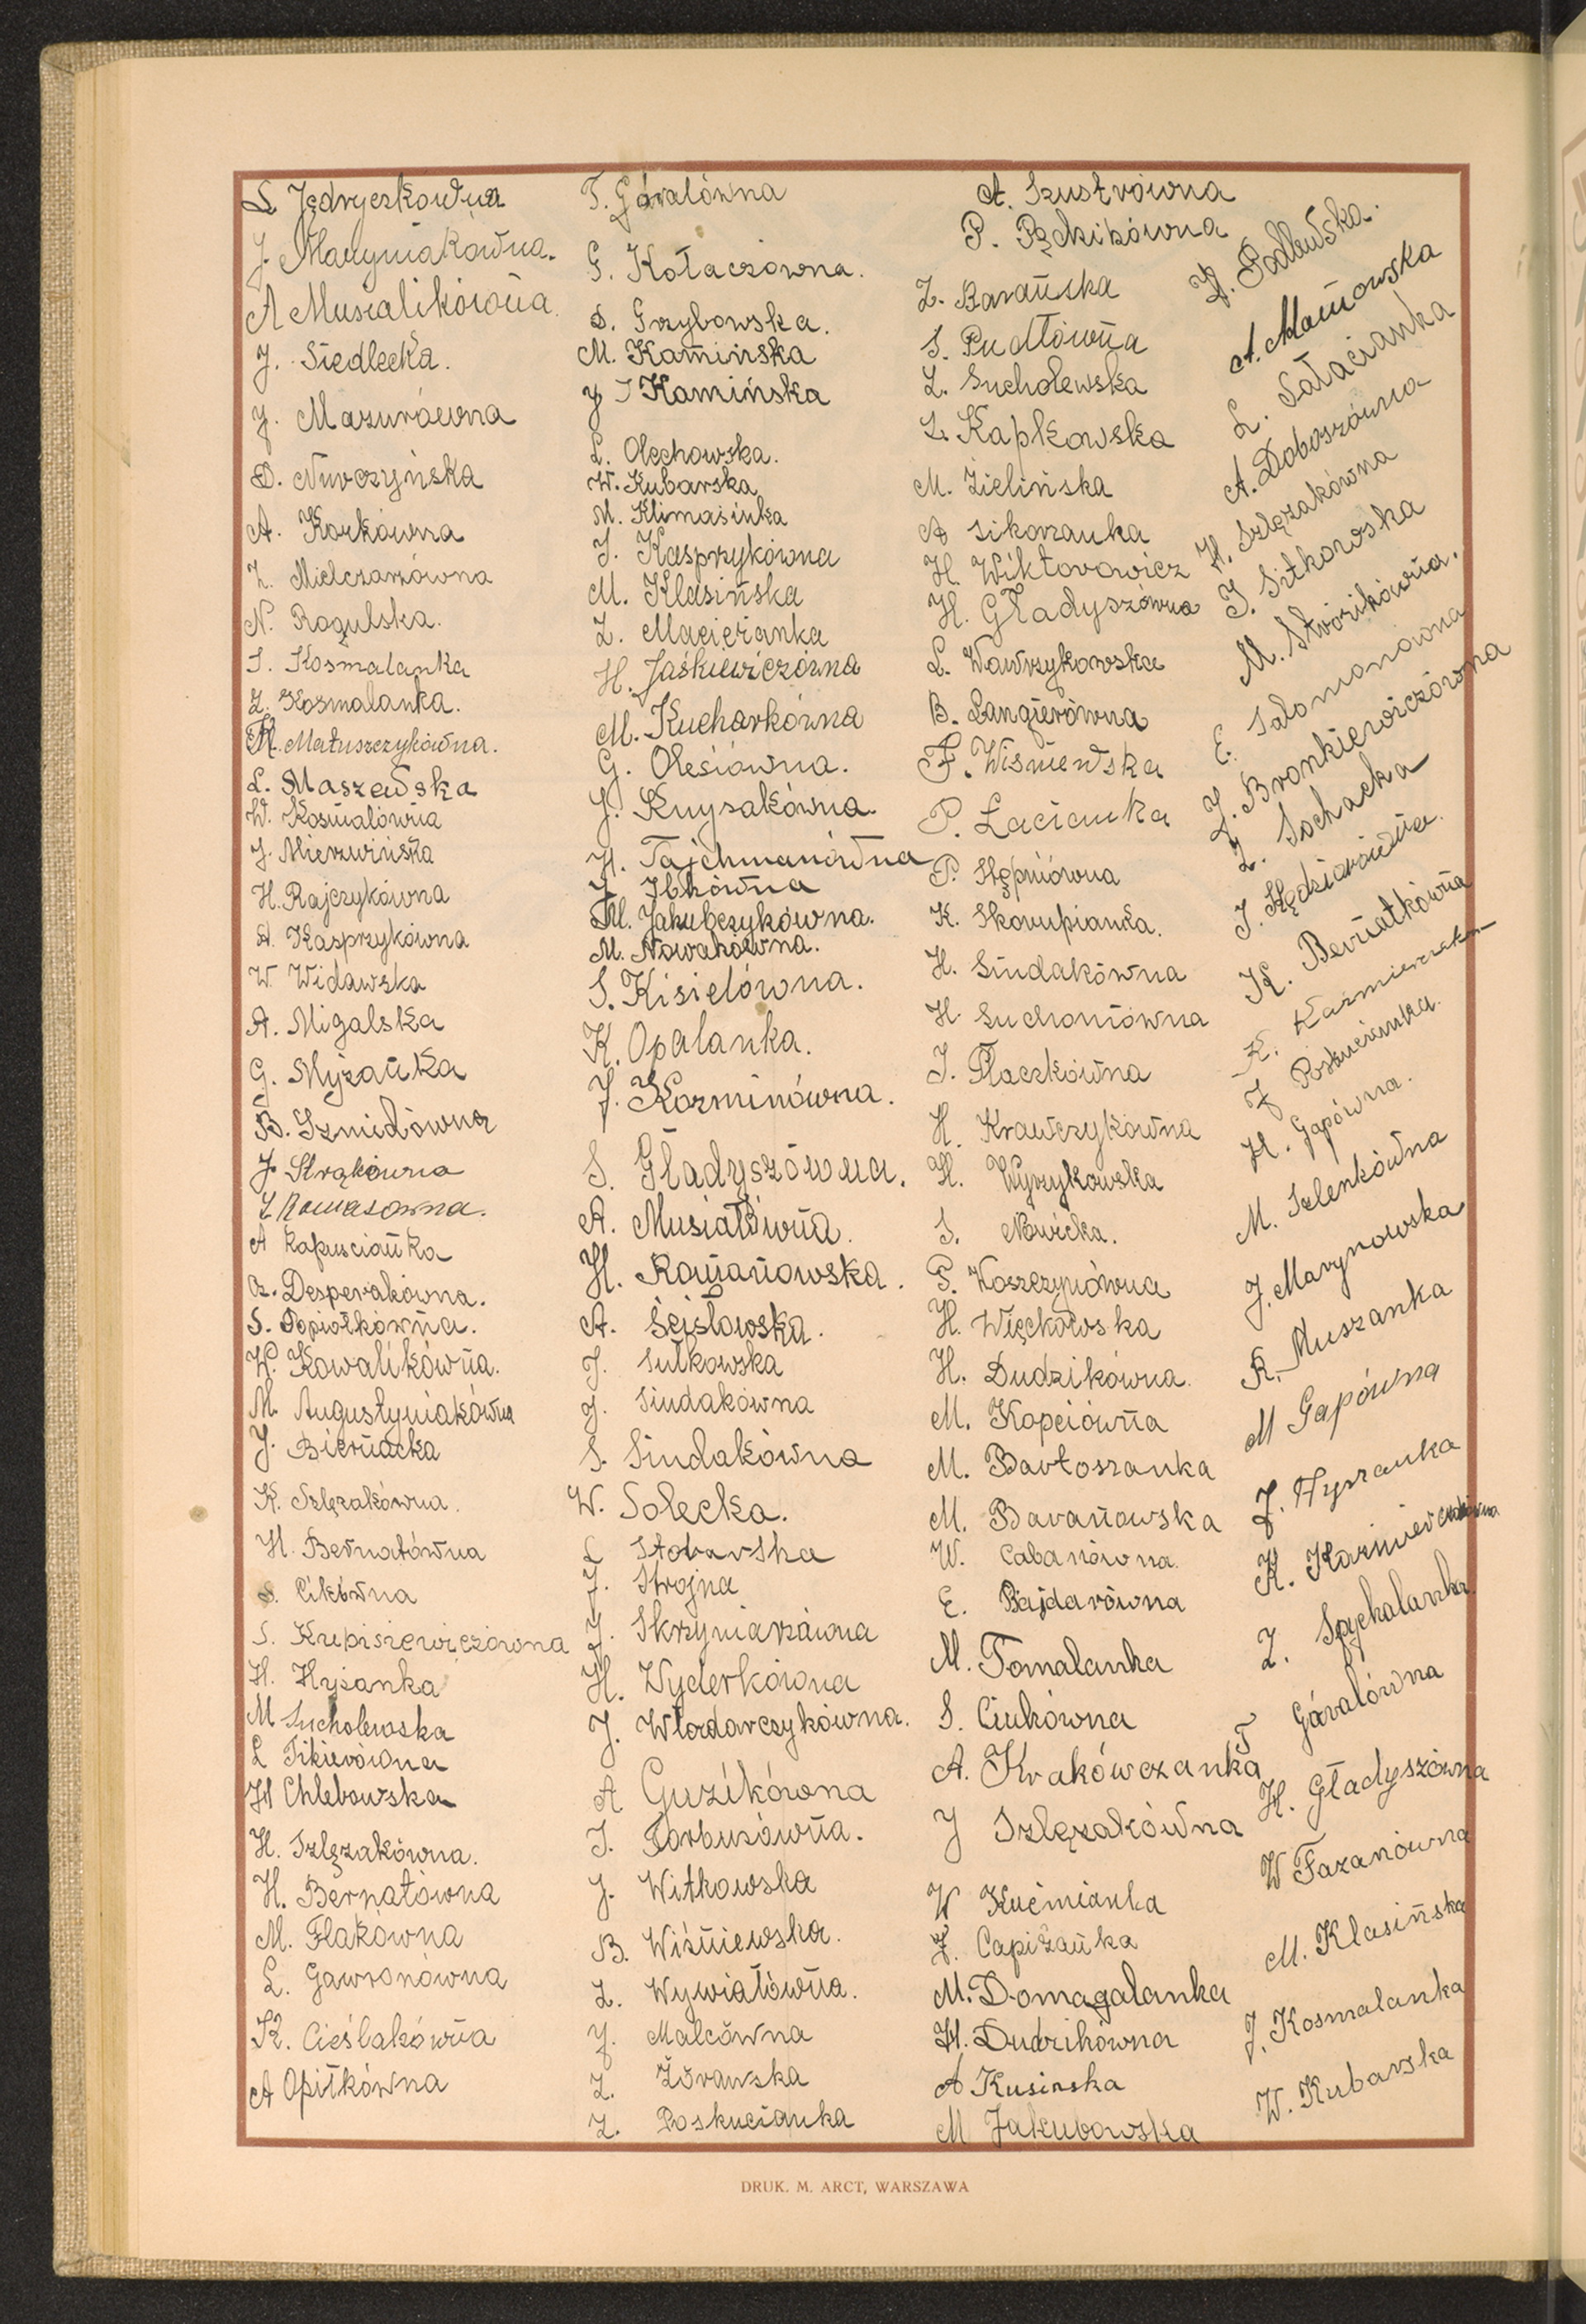 L. Jędryczkówna
J. Maryniakówna.
A Musialikówna
J. Siedlecka.
J. Mazurówna
D. Nurczyńska
A. Korkówna
Z. Mielczarzówna
N. Rogulska.
I. Kosmalanka
Z. Kosmalanka.
H. Matuszczykówna.
L. Maszewska
W. Kosmalówna
J. Mierzwińska
H. Rajczykówna
A. Kasprzykówna
W. Widawska
A. Migalska
G. Myżanka
B. Szmidówna
J. Strąkówna
A Kapuścianka
Cz. Desperakówna.
S. Popiołkówna.
W. Kowalikówna.
M. Augustyniakówna
J. Biernacka
K. Szlęzakówna.
H. Bernatówna
S. Cikówna
S. Krupisiewiczówna
H. Hyżanka
M Sucholewska
L Pikierówna
H Chlebowska
H. Szlęzakówna.
H. Bernatówna
M. Flakówna
L. Gawronówna
K. Cieślakówna
A Opiłkówna
T. Góralówna
G. Kołaczówna.
S. Grzybowska.
M. Kamińska
J Kamińska
L. Olechowska.
W. Kubarska
M. Klimasinka
J. Kasprzykówna
M. Klasińska
Z. Maciejanka
H. Jaśkiewiczówna
M. Kucharkówna
G. Olesiówna.
J. Knysakówna
H. Tajchmanówna
J. Ibkówna
M. Jakubczykówna.
M. Nowakówna.
S. Kisielówna.
K. Opalanka.
J. Korminówna.
S. Gładyszówna.
A. Musiałówna.
H. Romanowska.
A. Ścisłowska.
J. Sulkowska
J. Sindakówna
S. Sindakówna
W. Solecka.
L Stolarska
J. Strojna
J. Skrzyniarzówna
H. Wyderkówna
J. Włodarczykówna.
A Guzikówna
J. Torbusówna.
J. Witkowska
B. Wiśniewska.
Z. Wywiałówna.
J. Malcówna
Z. Żórawska
Z. Poskucianka
A. Szustrówna
P. Pęckikówna
Z. Barańska
S. Pudłówna
Z. Sucholewska
Z. Kapkowska
M. Zielińska
A Sikorzanka
H. Wiktorowicz
H. Gładyszówna
L. Wawrzykowska
B. Langierówna
F. Wiśniewska
P. Łacianka
P. Stępniówna
K. Skorupianka.
H. Sindakówna
H. Suchoniówna
J. Płaczkówna
H. Krawczykówna
H. Wyrzykowska
S. Nowicka.
P. Koszczynówna
H. Więckowska
H. Dudzikówna.
M. Kopciówna
M. Bartoszanka
M. Baranowska
W. Cabanówna.
E. Bajdarówna
M. Tomalanka
S. Ciukówna
A. Krakówczanka
J Szlęzakówna
W Kućmianka
J. Capiżanka
M. Domagalanka
H. Dudzikówna
A Kusinska
M Jakubowska
J. Podlewska.
A. Mańowska
L. Sałacianka
A. Doboszówna
H. Szlęzakówna
J. Sitkowska
M. Stworikówna.
E. Salomonówna
J. Bronkiewiczówna
Z. Sochacka
J. Kędziorówna.
K. Berniatkówna
J Poskucianka.
H. Gapówna.
M. Szlenkówna
J. Marynowska
R. Muszanka
M Gapówna
J. Hyszanka
K. Kaźmierczakówna
Z. Spychalanka
T Góralówna
H. Gładyszówna
W Fazanówna
M. Klasińska
J. Kosmalanka
W. Kubarska
DRUK. M. ARCT, WARSZAWA